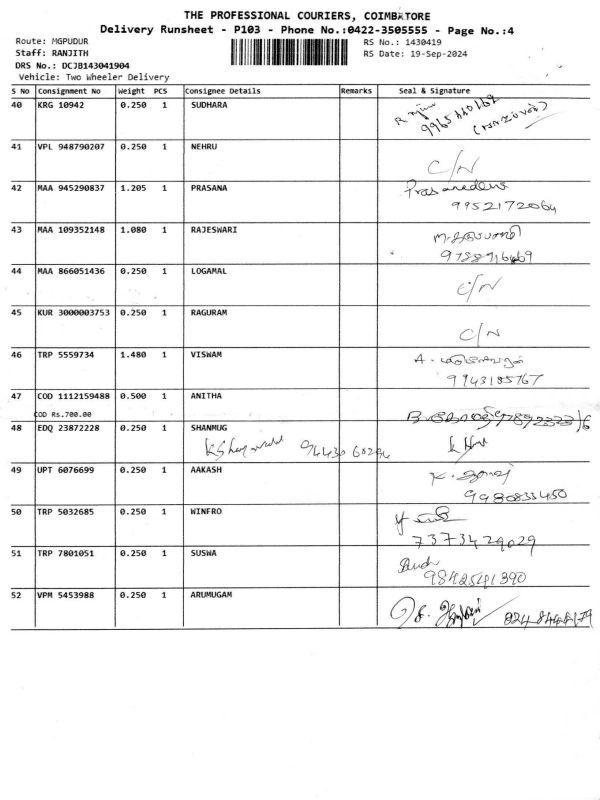 THE PROFESSIONAL COURIERS, COIMBATORE
Delivery Runsheet - P103 - Phone No.:0422-3505555 - Page No.:4
Route: MGPUDUR
RS No.: 1430419
Staff: RANJITH
RS Date: 19-Sep-2024
DRS No.: DCJB143041904
Vehicle: Two Wheeler Delivery
S No Consignment No Weight PCS Consignee Details Remarks Seal & Signature
40 KRG 10942 0.250 1 SUDHARA
41 VPL 948790207 0.250 1 NEHRU C/N
42 MAA 945290837 1.205 1 PRASANA
9952172064
43 MAA 109352148 1.080 1 RAJESWARI
9788916669
44 MAA 866051436 0.250 1 LOGAMAL C/N
45 KUR 3000003753 0.250 1 RAGURAM C/N
46 TRP 5559734 1.480 1 VISWAM
9943185767
47 COD 1112159488 0.500 1 ANITHA
COD Rs.700.00
48 EDQ 23872228 0.250 1 SHANMUG
49 UPT 6076699 0.250 1 AAKASH
9980833450
50 TRP 5032685 0.250 1 WINFRO
7373429029
51 TRP 7801051 0.250 1 SUSWA
9842541390
52 VPM 5453988 0.250 1 ARUMUGAM